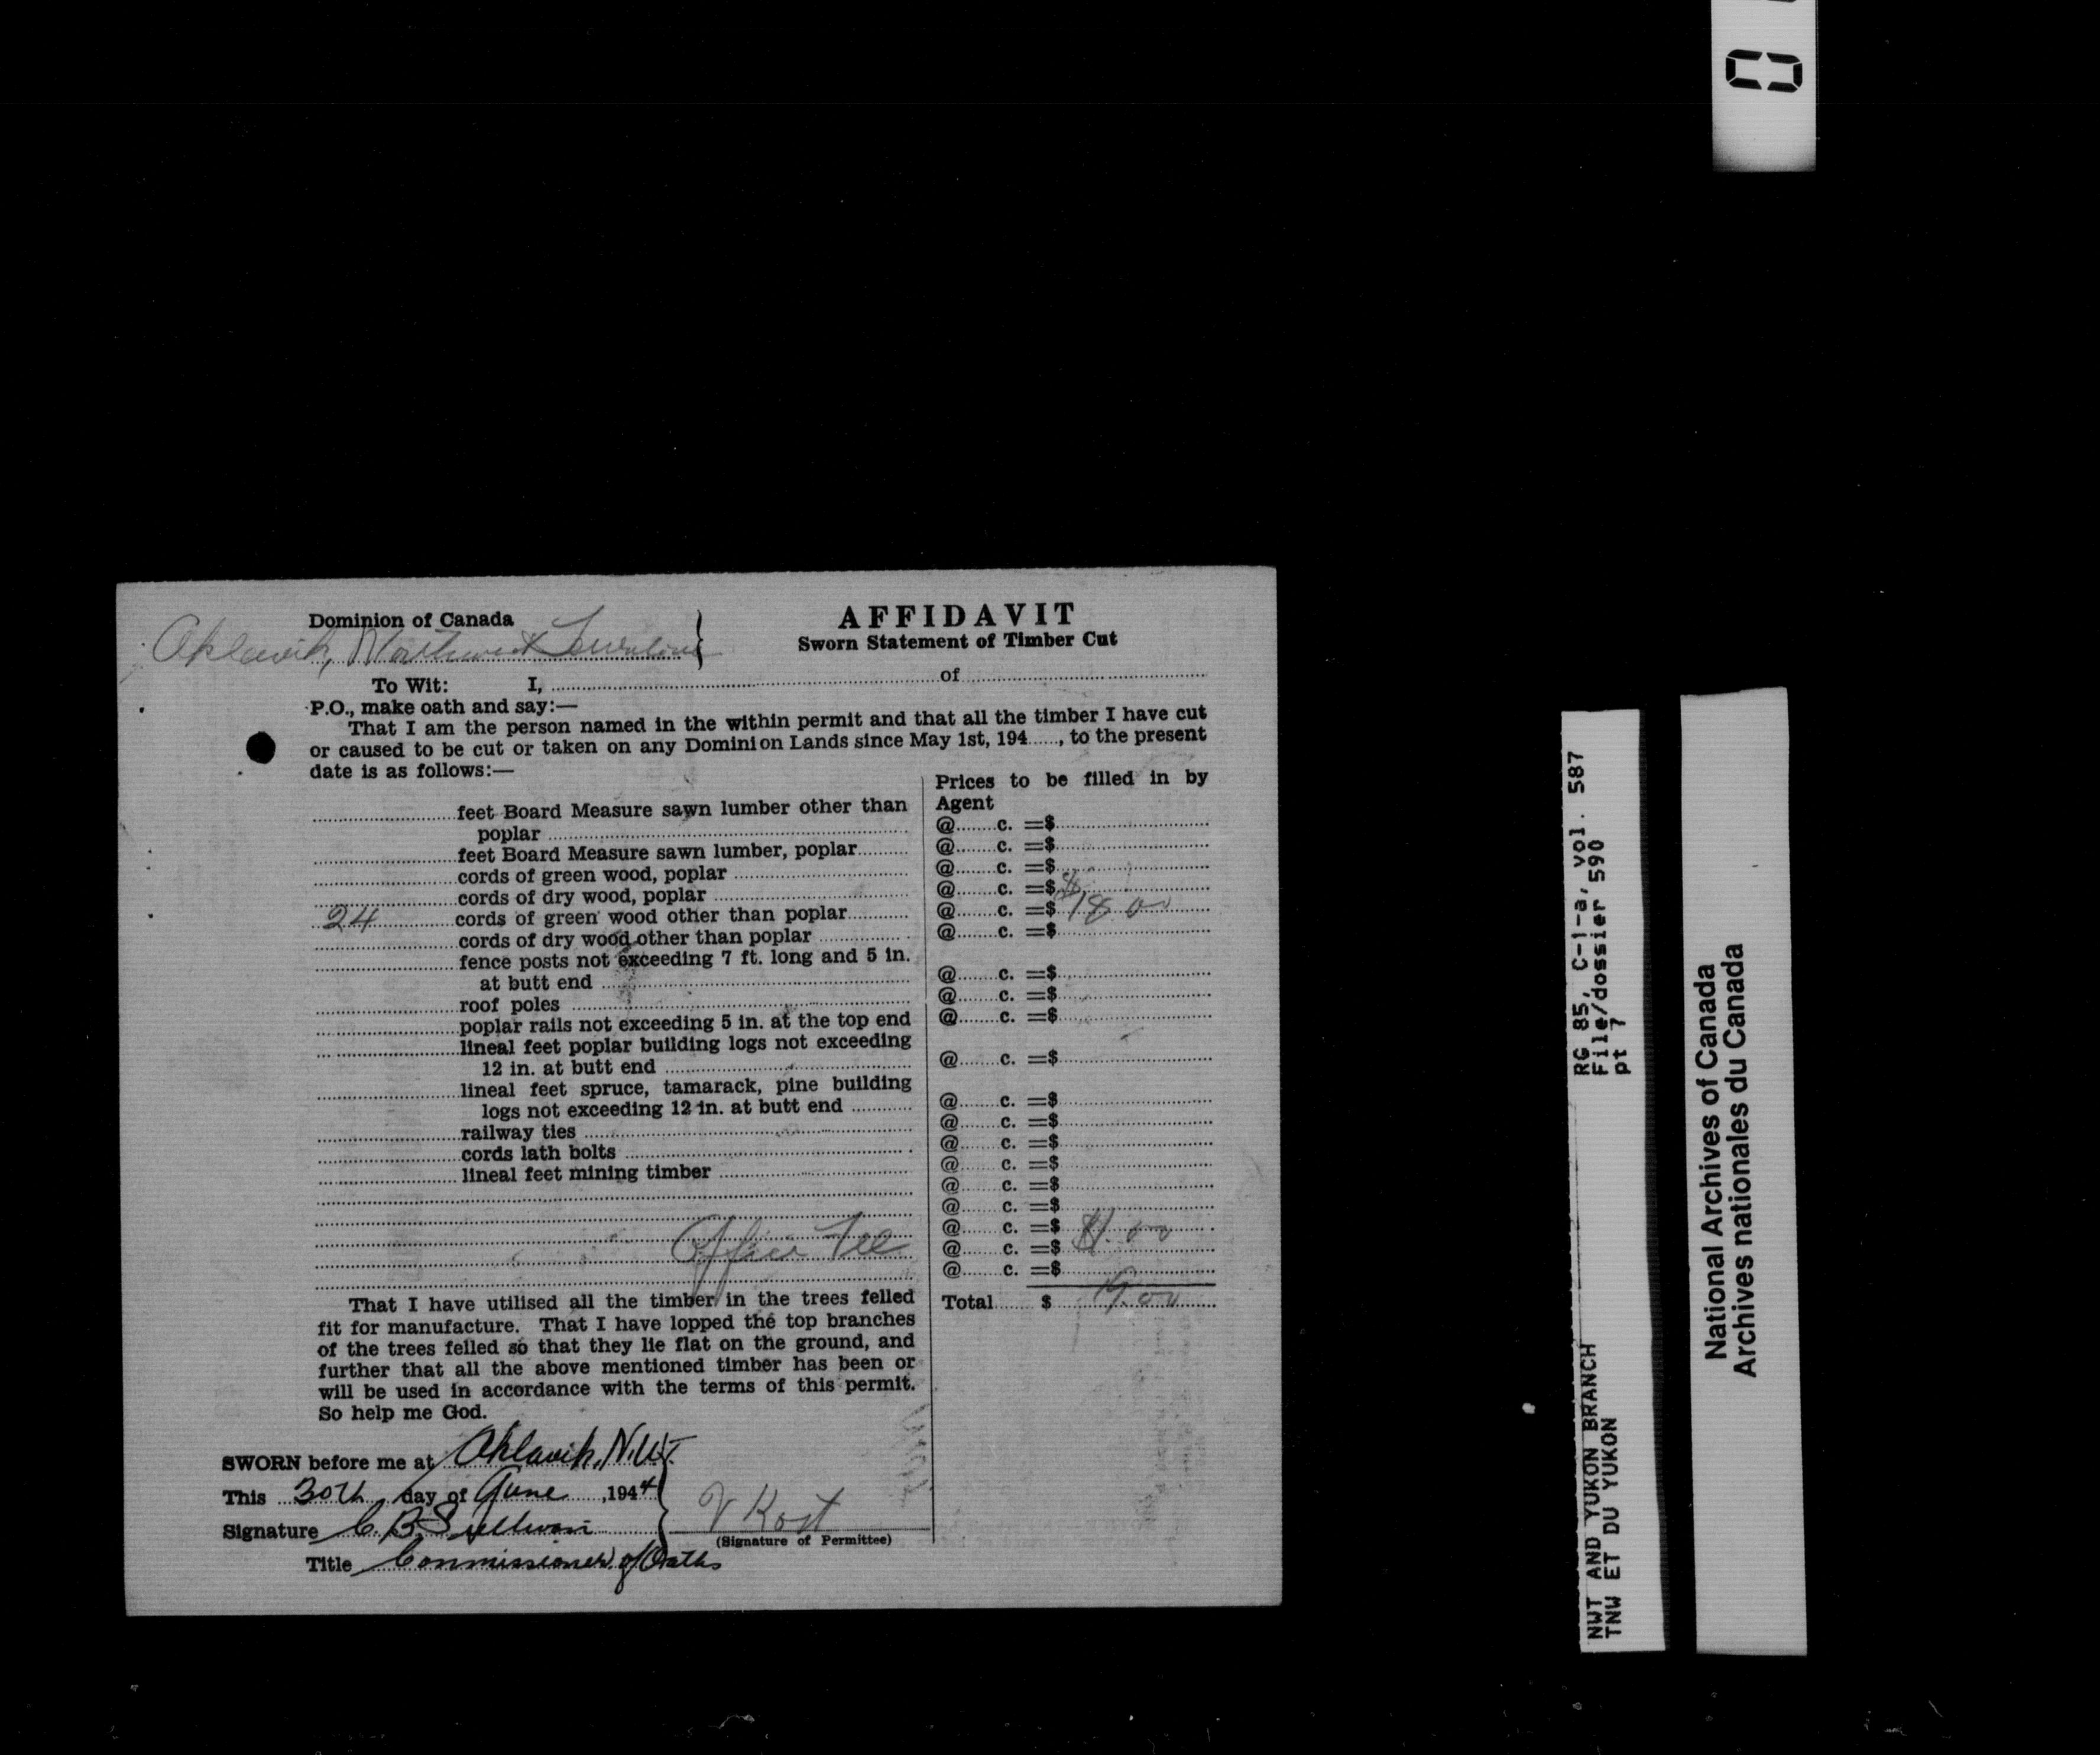 Dominion of Canada
Aklavik, Northwest Territories
AFFIDAVIT
Sworn Statement of Timber Cut
To Wit: I, of
P.O., make oath and say:—
That I am the person named in the within permit and that all the timber I have cut
or caused to be cut or taken on any Dominion Lands since May 1st, 194......, to the present
date is as follows:—
Prices to be filled in by
Agent
feet Board Measure sawn lumber other than
poplar @ c. =$
feet Board Measure sawn lumber, poplar @ c. =$
cords of green wood, poplar @ c. =$
cords of dry wood, poplar @ c. =$
24 cords of green wood other than poplar @ c. =$ 18.00
cords of dry wood other than poplar @ c. =$
fence posts not exceeding 7 ft. long and 5 in.
at butt end @ c. =$
roof poles @ c. =$
poplar rails not exceeding 5 in. at the top end @ c. =$
lineal feet poplar building logs not exceeding
12 in. at butt end @ c. =$
lineal feet spruce, tamarack, pine building
logs not exceeding 12 in. at butt end @ c. =$
railway ties @ c. =$
cords lath bolts @ c. =$
lineal feet mining timber @ c. =$
@ c. =$
@ c. =$
@ c. =$ $1.00
Office Fee @ c. =$
@ c. =$
Total $ 19.00
That I have utilised all the timber in the trees felled
fit for manufacture. That I have lopped the top branches
of the trees felled so that they lie flat on the ground, and
further that all the above mentioned timber has been or
will be used in accordance with the terms of this permit.
So help me God.
SWORN before me at Aklavik, N.W.T.
This 30th day of June, 1944
Signature C. B. Sullivan
V Kost
(Signature of Permittee)
Title Commissioner of Oaths
RG 85, C-1-a, vol. 587
File/dossier 590
pt 7
NWT AND YUKON BRANCH
TNW ET DU YUKON
National Archives of Canada
Archives nationales du Canada